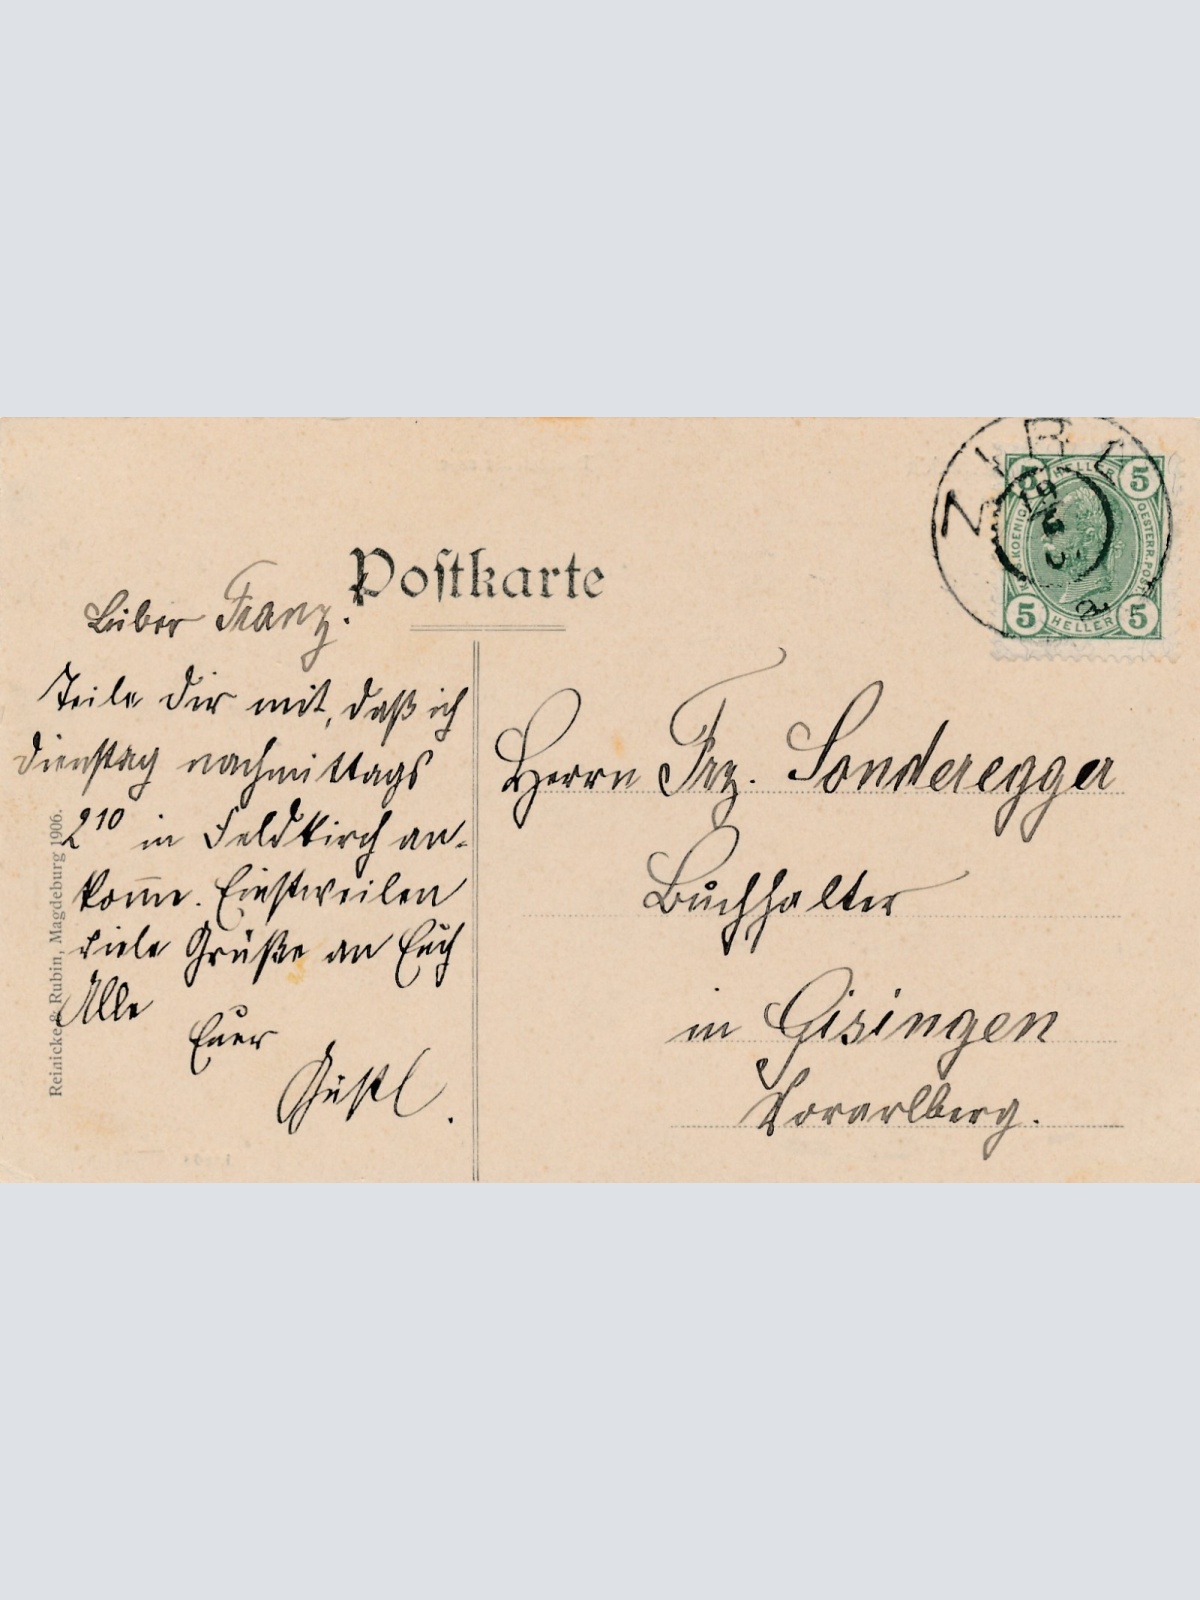 Postkarte
Lieber Franz!
Teile Dir mit, daß ich
Dienstag nachmittags
2¹⁰ in Feldkirch an-
kom̅e. Einstweilen
viele Grüße an Euch
Alle
Euer
Gustl.
Herrn Frz. Sonderegger
Buchhalter
in Gisingen
Vorarlberg.
Reinicke & Rubin, Magdeburg 1906.
ZIRL
5 HELLER 5
K.K. KOENIGL. OESTERR. POST
5 HELLER 5